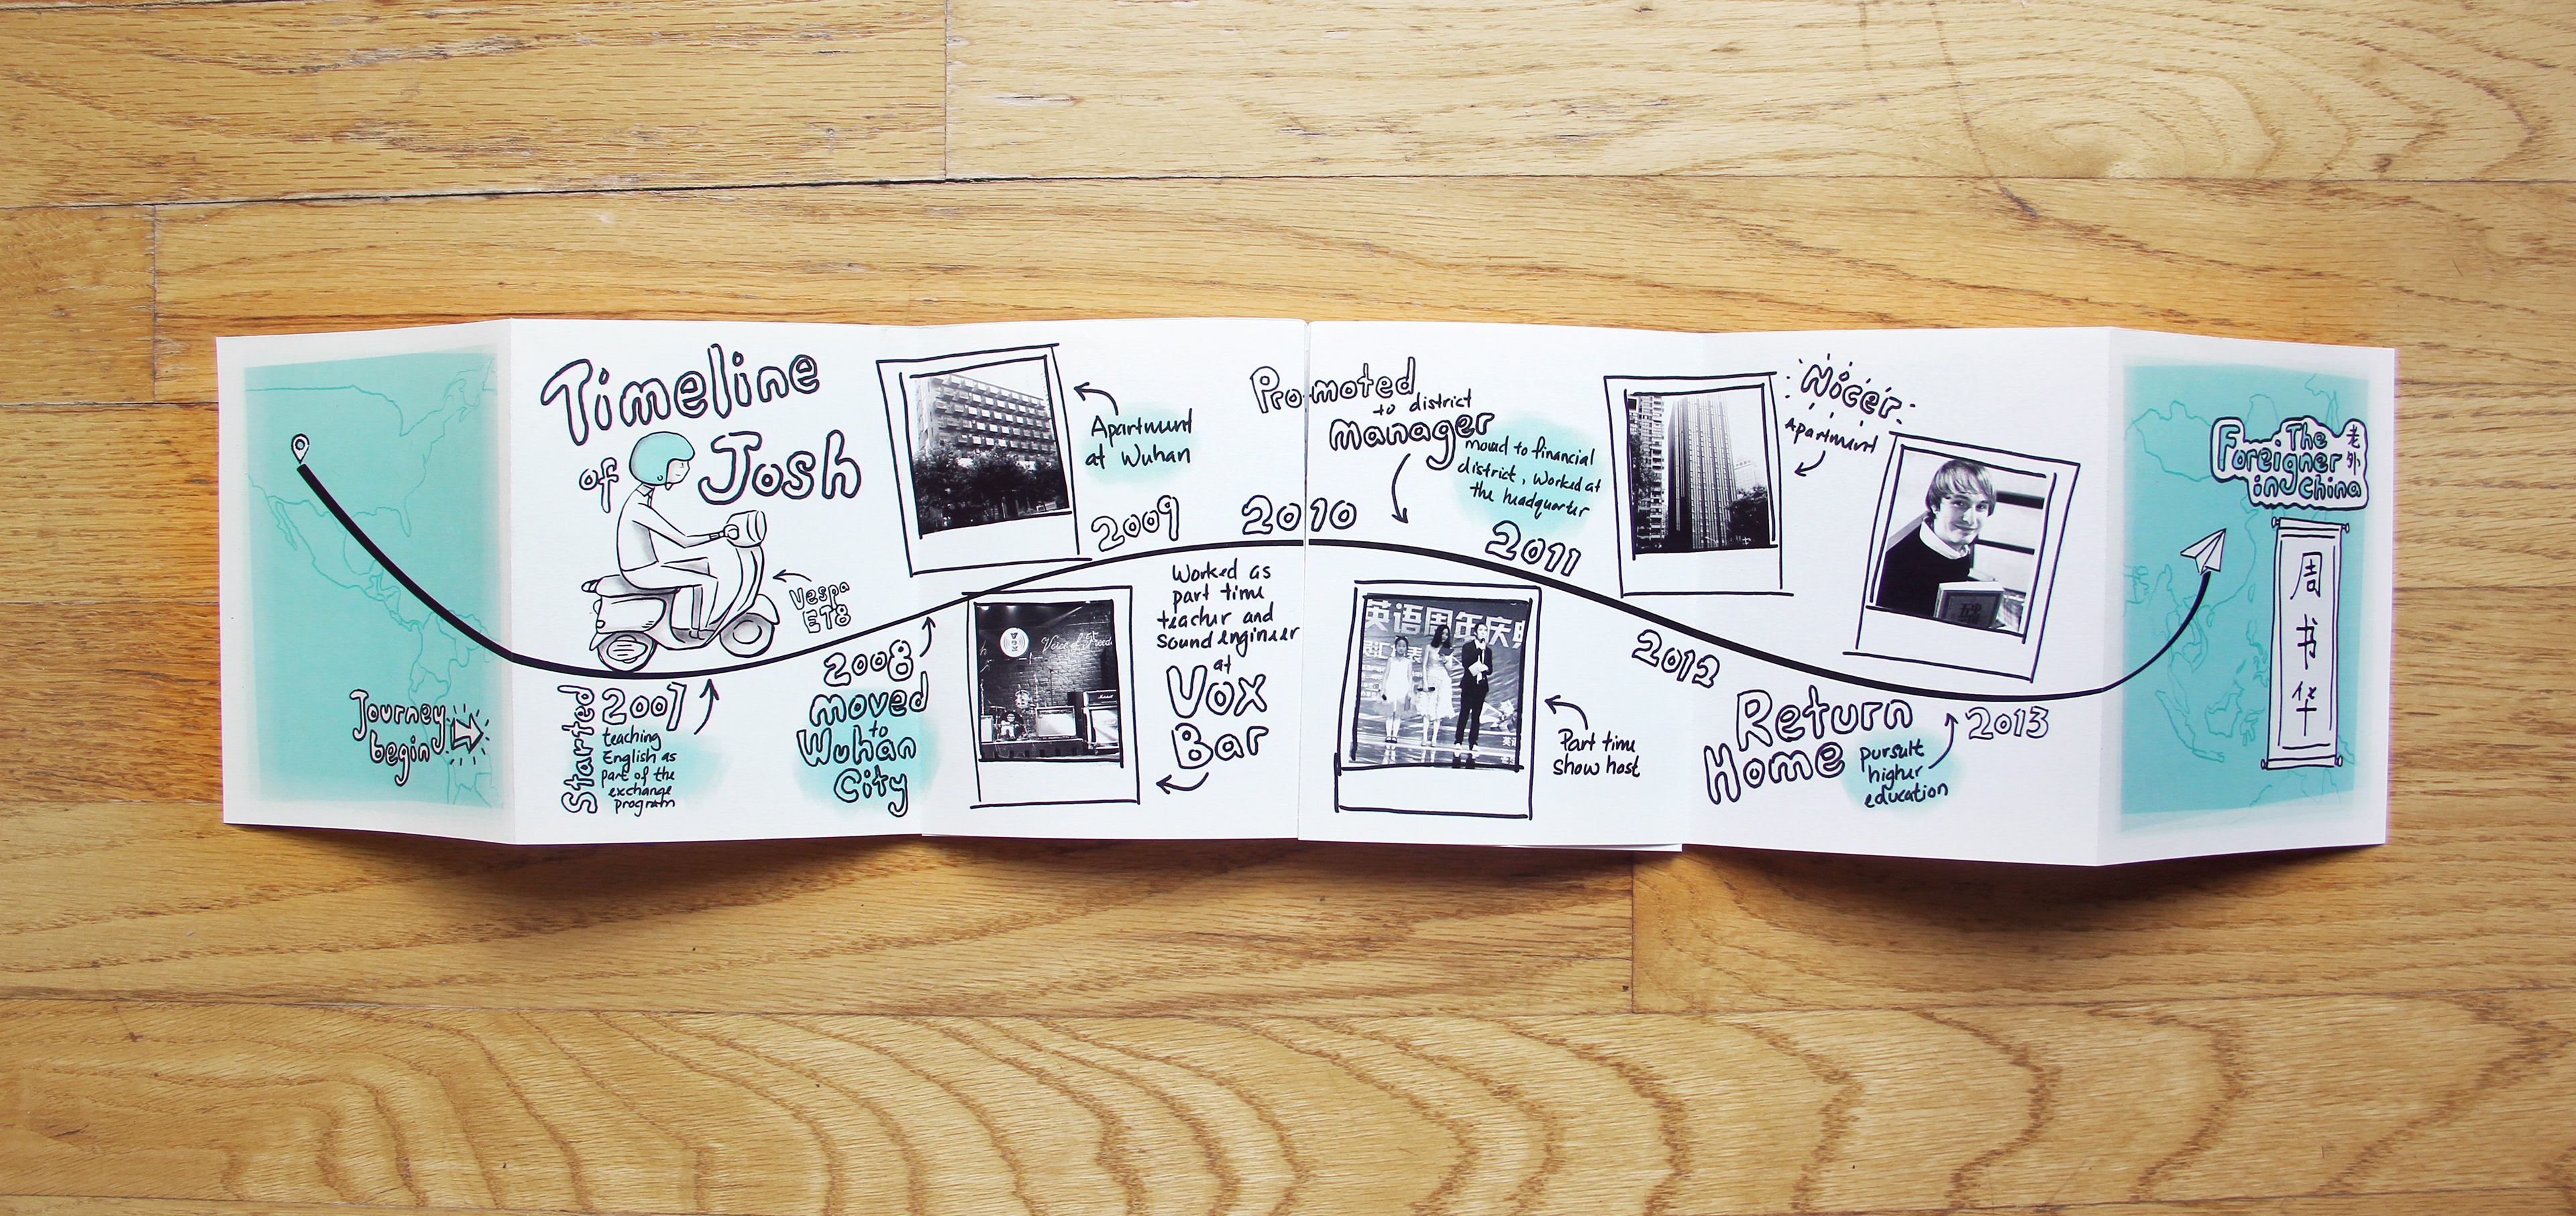 Journey
begin
Timeline
of Josh
Vespa
ET8
Started
2007
teaching
English as
part of the
exchange
program
2008
moved
to
Wuhan
City
Apartment
at Wuhan
2009
Voice of Freedo
VOX
Worked as
part time
teacher and
Sound engineer
at
Vox
Bar
2010
Promoted
to district
manager
moved to financial
district, worked at
the headquarter
英语周年庆典
汇代表
Part time
show host
2011
Nicer
Apartment
2012
Return
Home
pursuit
higher
education
2013
The
Foreigner
in China
老外
周书华